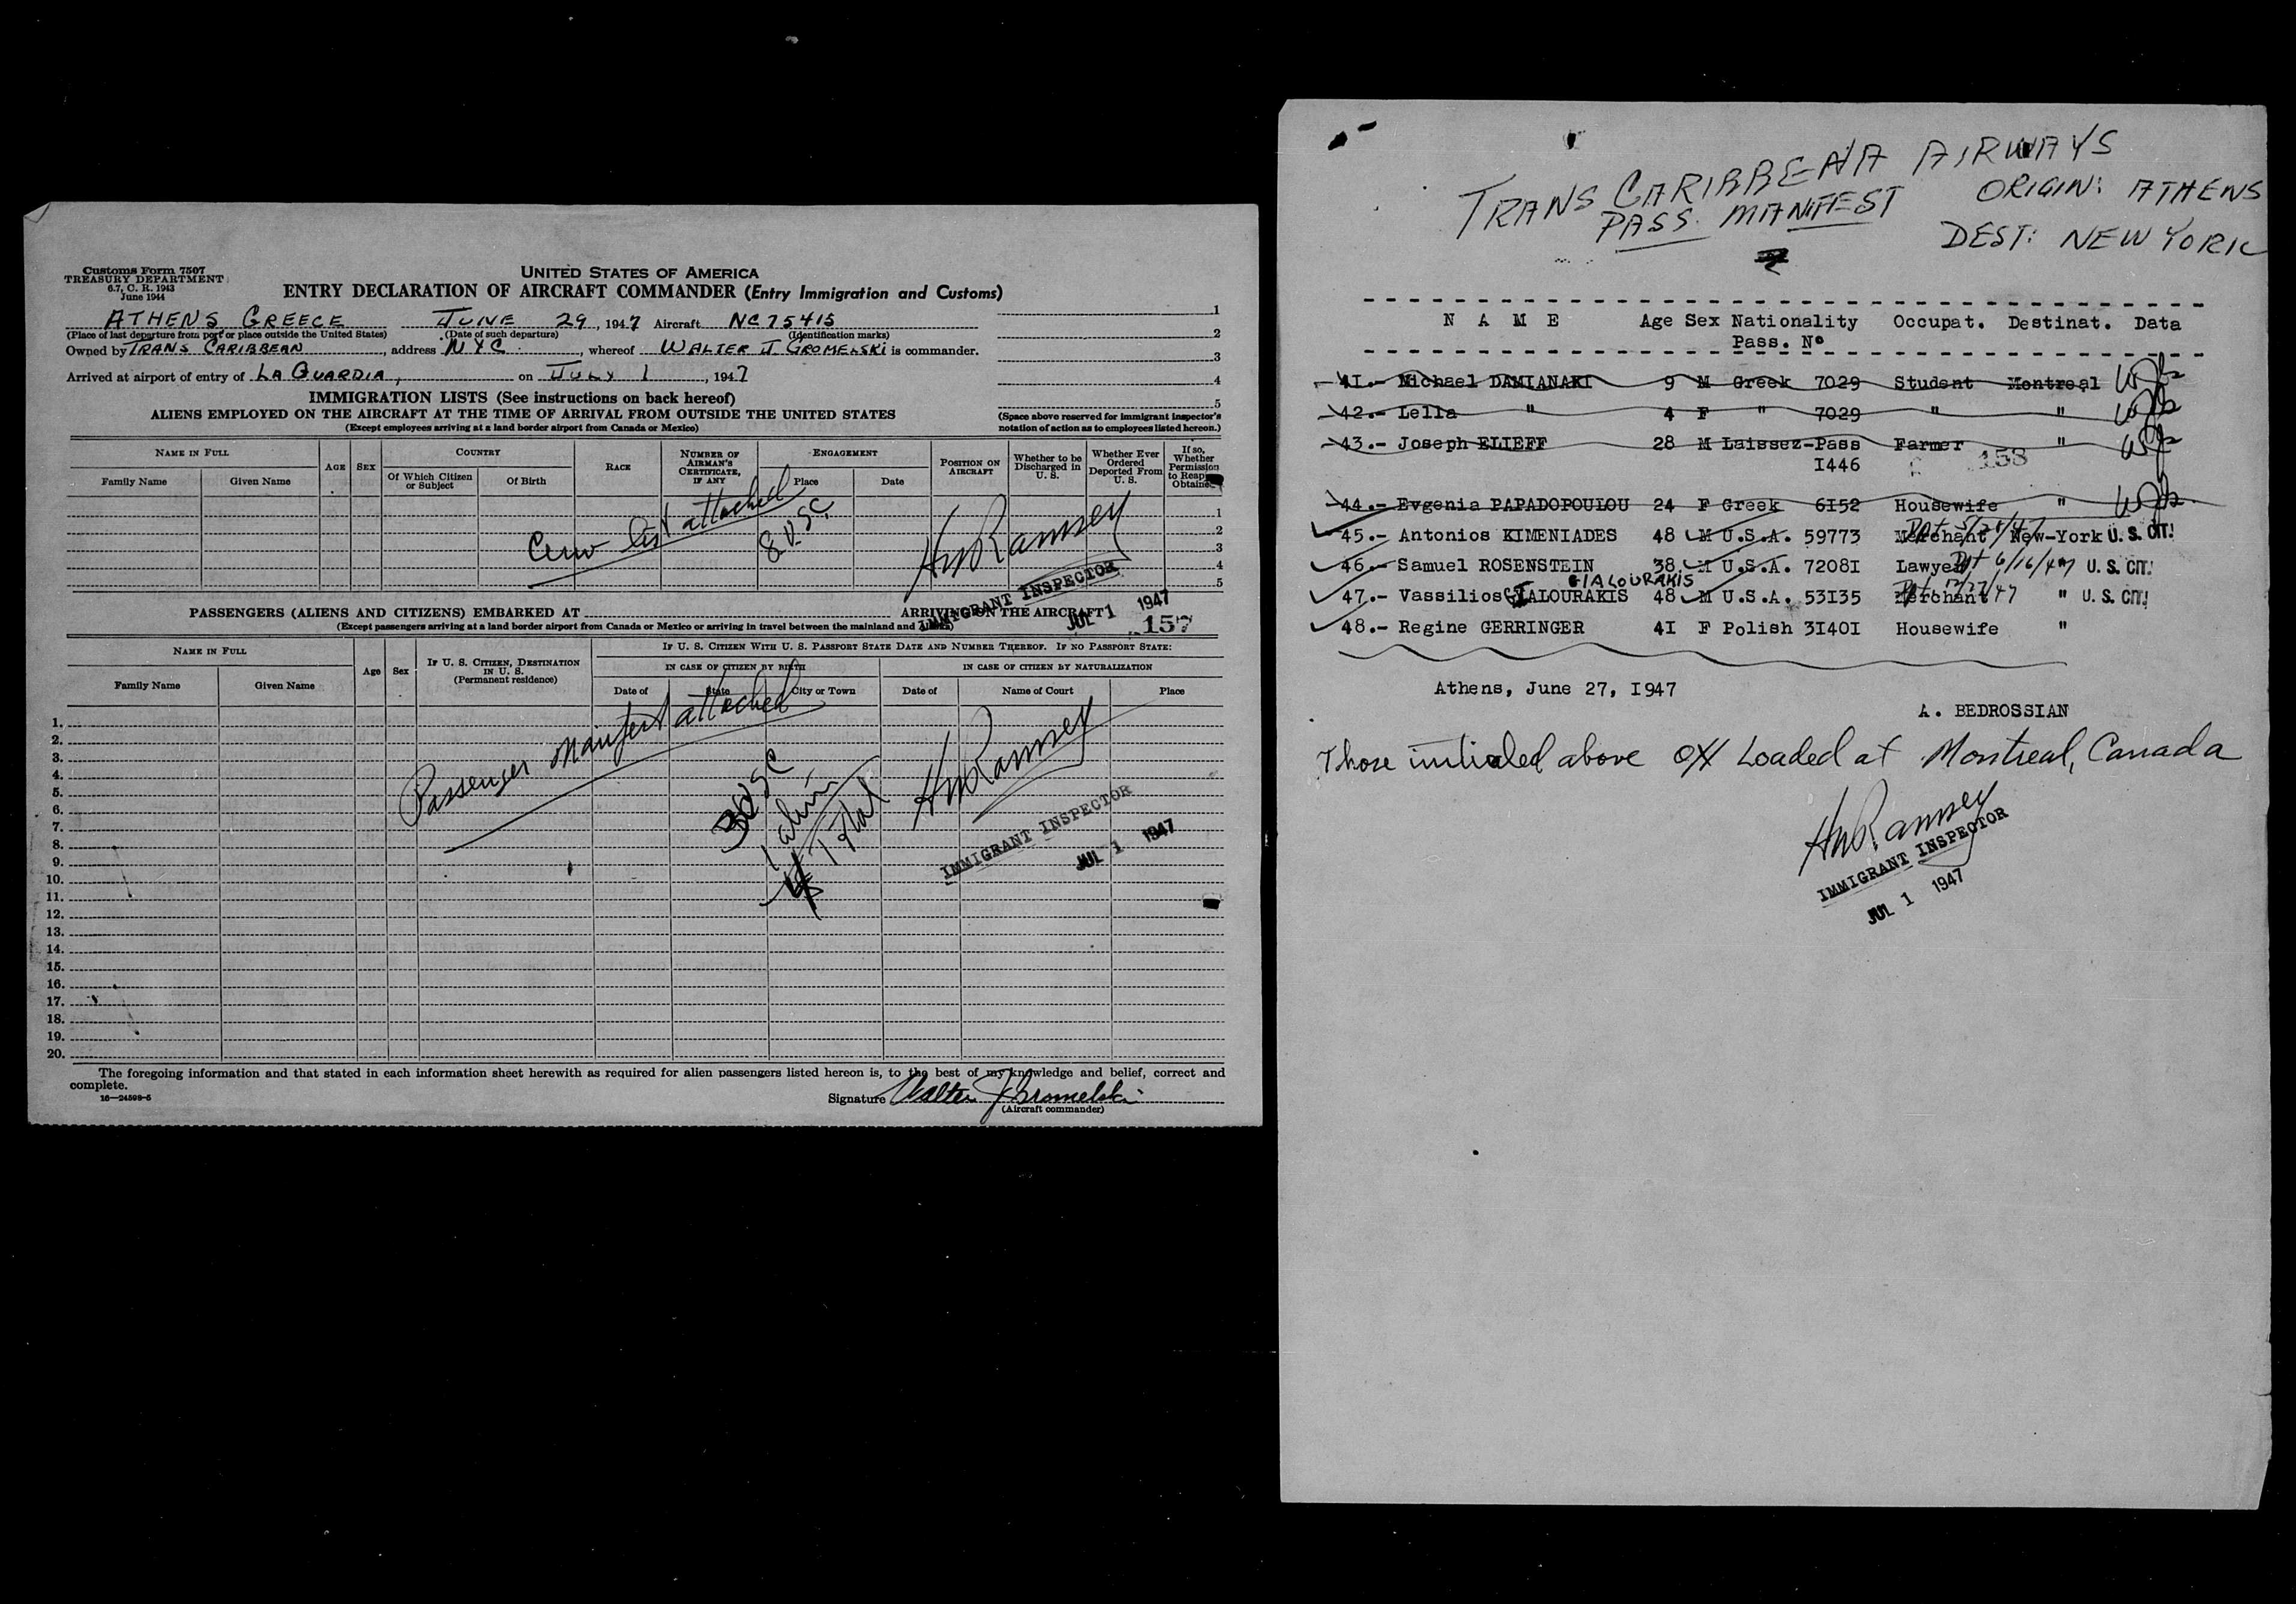 Customs Form 7507
TREASURY DEPARTMENT
6.7, C. R. 1943
June 1944
UNITED STATES OF AMERICA
ENTRY DECLARATION OF AIRCRAFT COMMANDER (Entry Immigration and Customs)
ATHENS GREECE JUNE 29, 1947 Aircraft NC75415
(Place of last departure from port or place outside the United States) (Date of such departure) (Identification marks)
Owned by TRANS CARIBBEAN, address NYC, whereof WALTER J GROMELSKI is commander.
Arrived at airport of entry of LA GUARDIA, on JULY 1, 1947
1
2
3
4
5
IMMIGRATION LISTS (See instructions on back hereof)
ALIENS EMPLOYED ON THE AIRCRAFT AT THE TIME OF ARRIVAL FROM OUTSIDE THE UNITED STATES
(Except employees arriving at a land border airport from Canada or Mexico)
(Space above reserved for immigrant inspector's
notation of action as to employees listed hereon.)
NAME IN FULL
Family Name Given Name
AGE SEX
COUNTRY
Of Which Citizen or Subject
Of Birth
RACE
NUMBER OF AIRMAN'S CERTIFICATE, IF ANY
ENGAGEMENT
Place Date
POSITION ON AIRCRAFT
Whether to be Discharged in U. S.
Whether Ever Ordered Deported From U. S.
If so, Whether Permission to Reapply Obtained
1
2
3
4
5
Crew list attached
8 USC
HWRamsey
IMMIGRANT INSPECTOR
JUL 1 1947
157
PASSENGERS (ALIENS AND CITIZENS) EMBARKED AT ARRIVING ON THE AIRCRAFT
(Except passengers arriving at a land border airport from Canada or Mexico or arriving in travel between the mainland and Alaska)
NAME IN FULL
Family Name Given Name
Age Sex
IF U. S. CITIZEN, DESTINATION IN U. S. (Permanent residence)
IF U. S. CITIZEN WITH U. S. PASSPORT STATE DATE AND NUMBER THEREOF. IF NO PASSPORT STATE:
IN CASE OF CITIZEN BY BIRTH IN CASE OF CITIZEN BY NATURALIZATION
Date of State City or Town Date of Name of Court Place
1.
2.
3.
4.
5.
6.
7.
8.
9.
10.
11.
12.
13.
14.
15.
16.
17.
18.
19.
20.
Passenger Manifest attached
3 USC
1 alien
4 Total
HWRamsey
IMMIGRANT INSPECTOR
JUL 1 1947
The foregoing information and that stated in each information sheet herewith as required for alien passengers listed hereon is, to the best of my knowledge and belief, correct and
complete.
16—24598-5
Signature Walter J Gromelski
(Aircraft commander)
TRANS CARIBBENA AIRWAYS
PASS. MANIFEST
ORIGIN: ATHENS
DEST: NEW YORK
N A M E Age Sex Nationality Occupat. Destinat. Data
Pass. Nº
41.- Michael DAMIANAKI 9 M Greek 7029 Student Montreal
42.- Lella " 4 F " 7029 " "
43.- Joseph ELIEFF 28 M Laissez-Pass Farmer "
I446 158
44.- Evgenia PAPADOPOULOU 24 F Greek 6I52 Housewife "
45.- Antonios KIMENIADES 48 M U.S.A. 59773 Merchant New-York U. S. CIT.
46.- Samuel ROSENSTEIN 38 M U.S.A. 7208I Lawyer Ppt 6/16/47 " U. S. CIT.
GIALOURAKIS
47.- Vassilios GIALOURAKIS 48 M U.S.A. 53I35 Merchant " U. S. CIT.
48.- Regine GERRINGER 4I F Polish 3I40I Housewife "
Athens, June 27, I947
A. BEDROSSIAN
Those initialed above off Loaded at Montreal, Canada
HWRamsey
IMMIGRANT INSPECTOR
JUL 1 1947